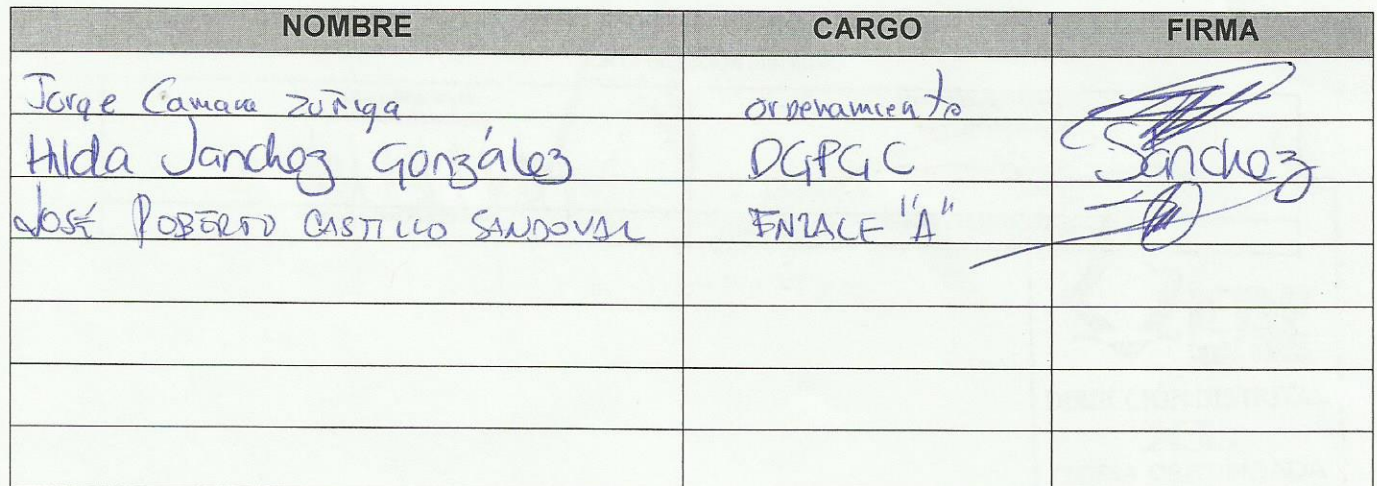 NOMBRE CARGO FIRMA
Jorge Camara Zuñiga ordenamiento
Hilda Sanchez González DGPGC Sánchez
José ROBERTO CASTILLO SANDOVAL ENLACE "A"